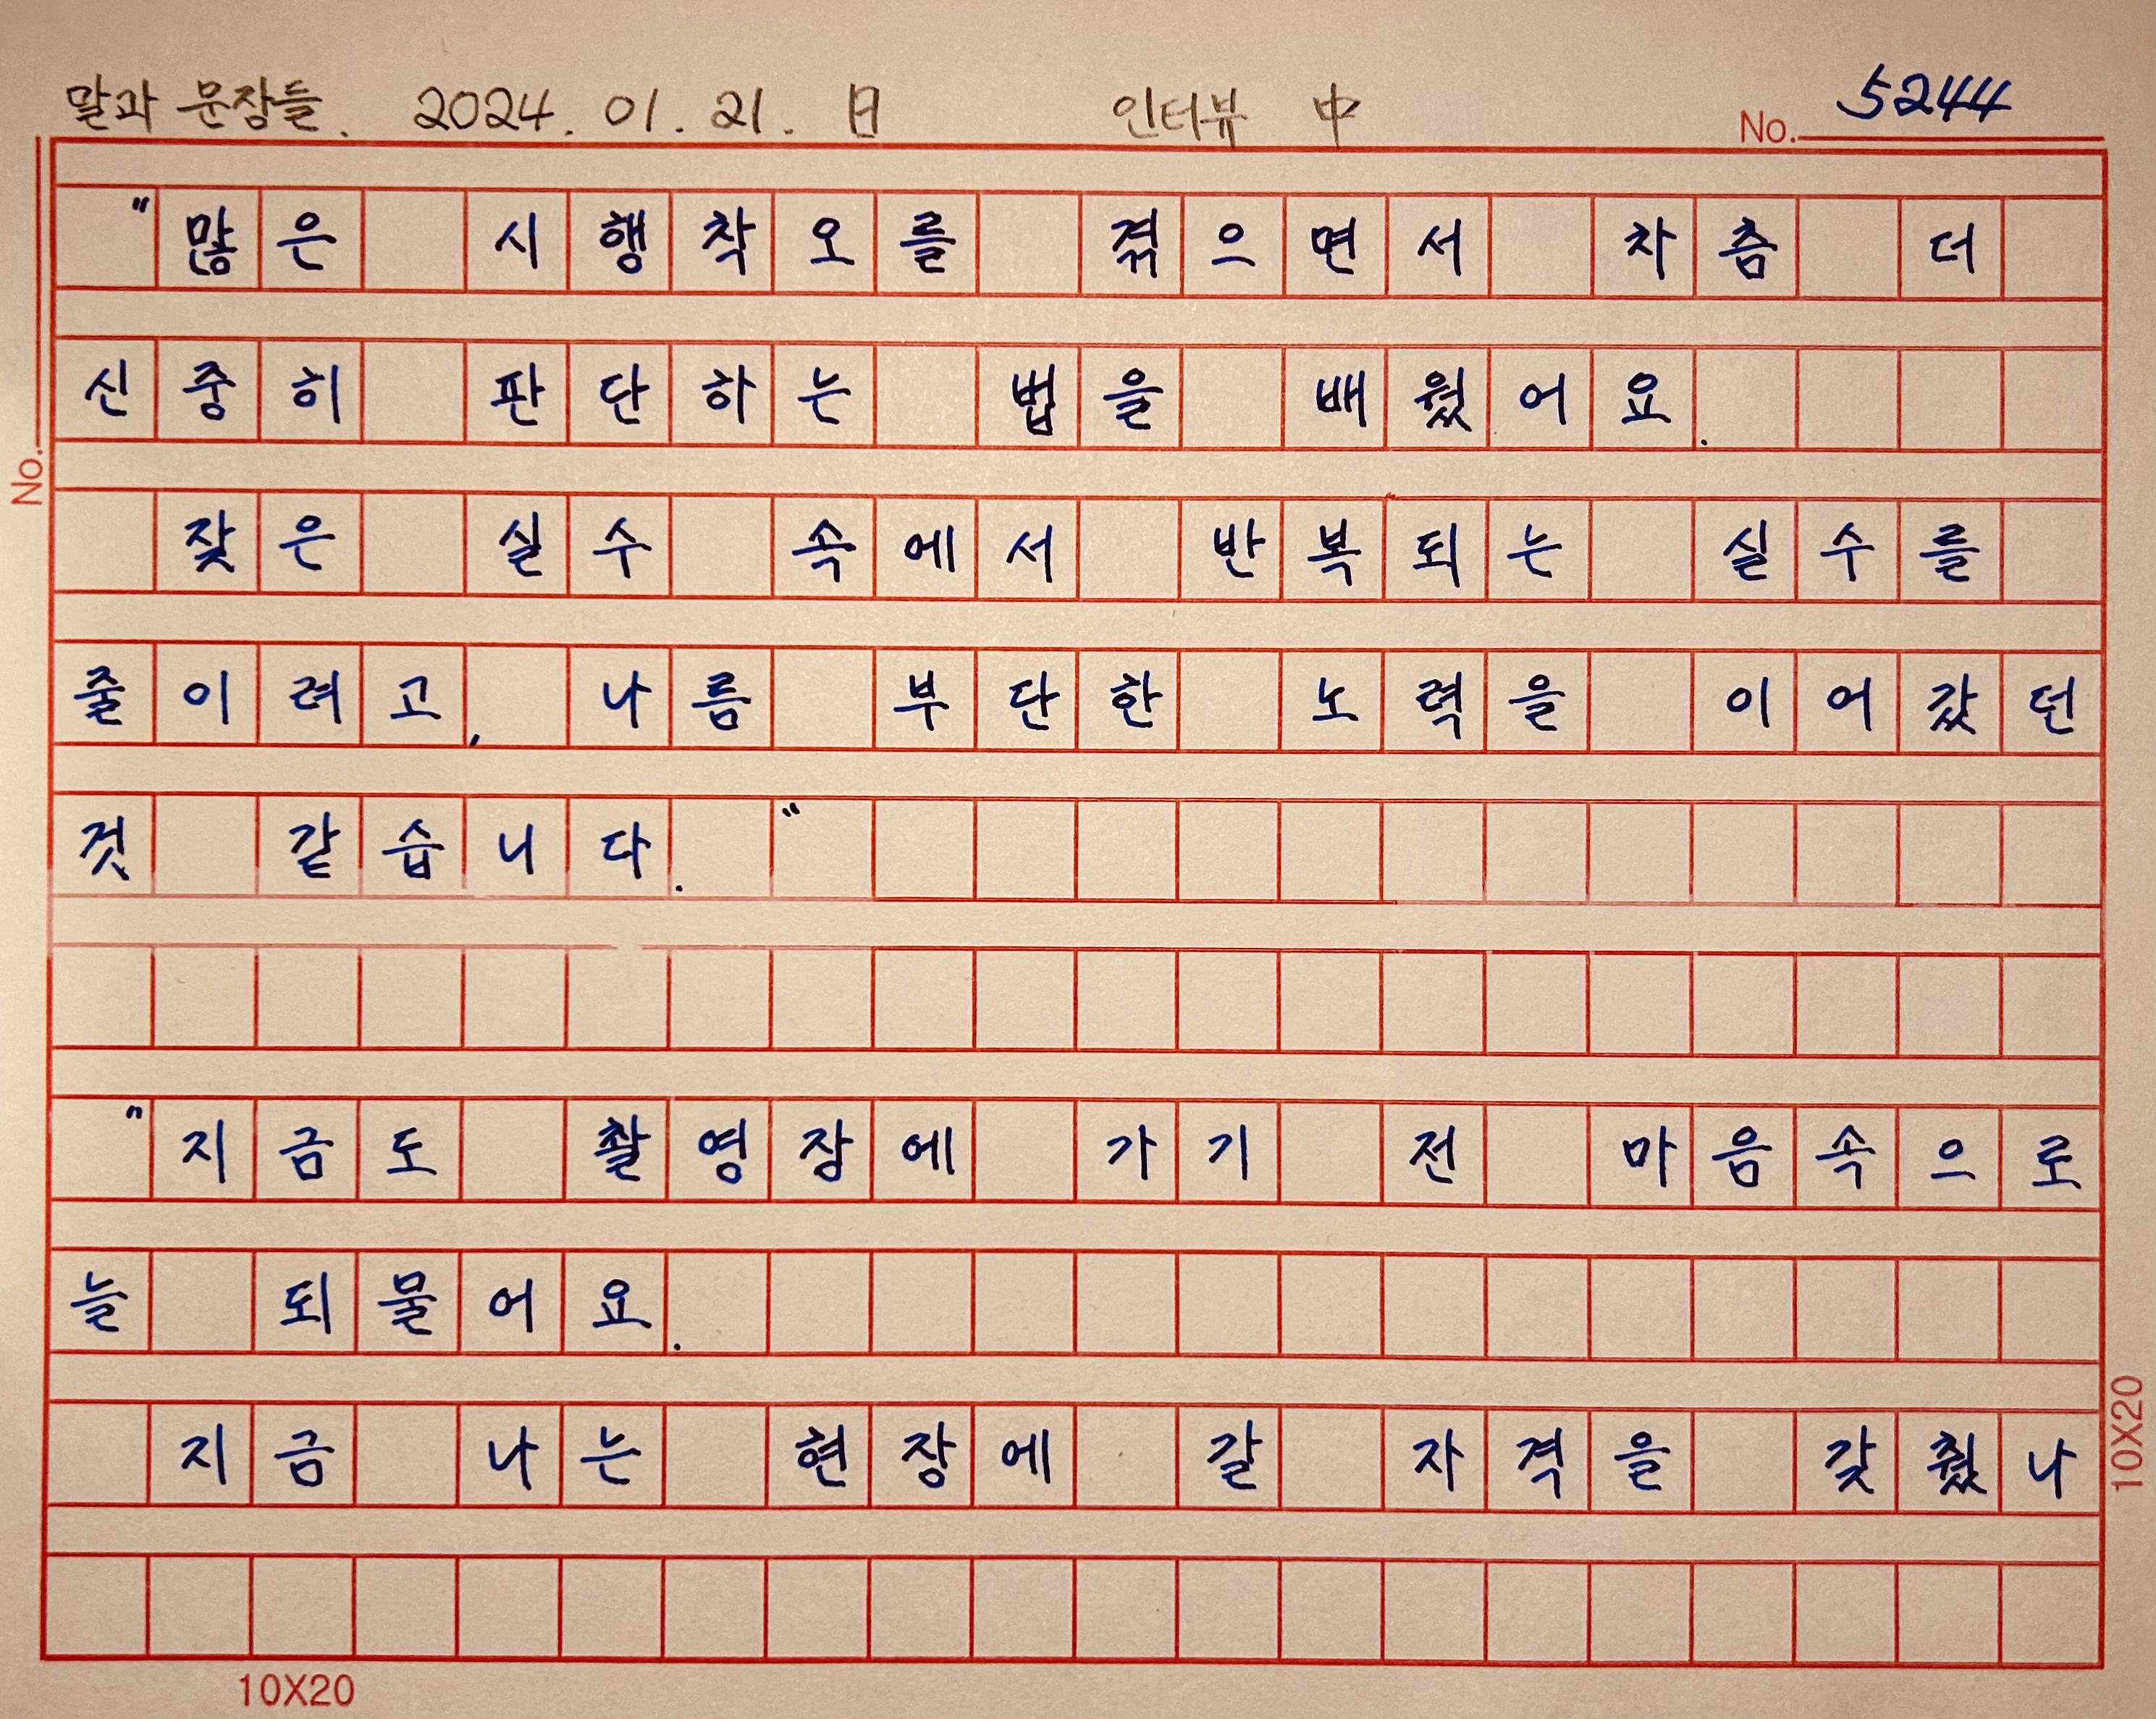 말과 문장들. 2024. 01. 21. 日 인터뷰 中 No. 5244
"많은 시행착오를 겪으면서 차츰 더
신중히 판단하는 법을 배웠어요.
잦은 실수 속에서 반복되는 실수를
줄이려고, 나름 부단한 노력을 이어갔던
것 같습니다."
"지금도 촬영장에 가기 전 마음속으로
늘 되물어요.
지금 나는 현장에 갈 자격을 갖췄나
No.
10X20
10X20